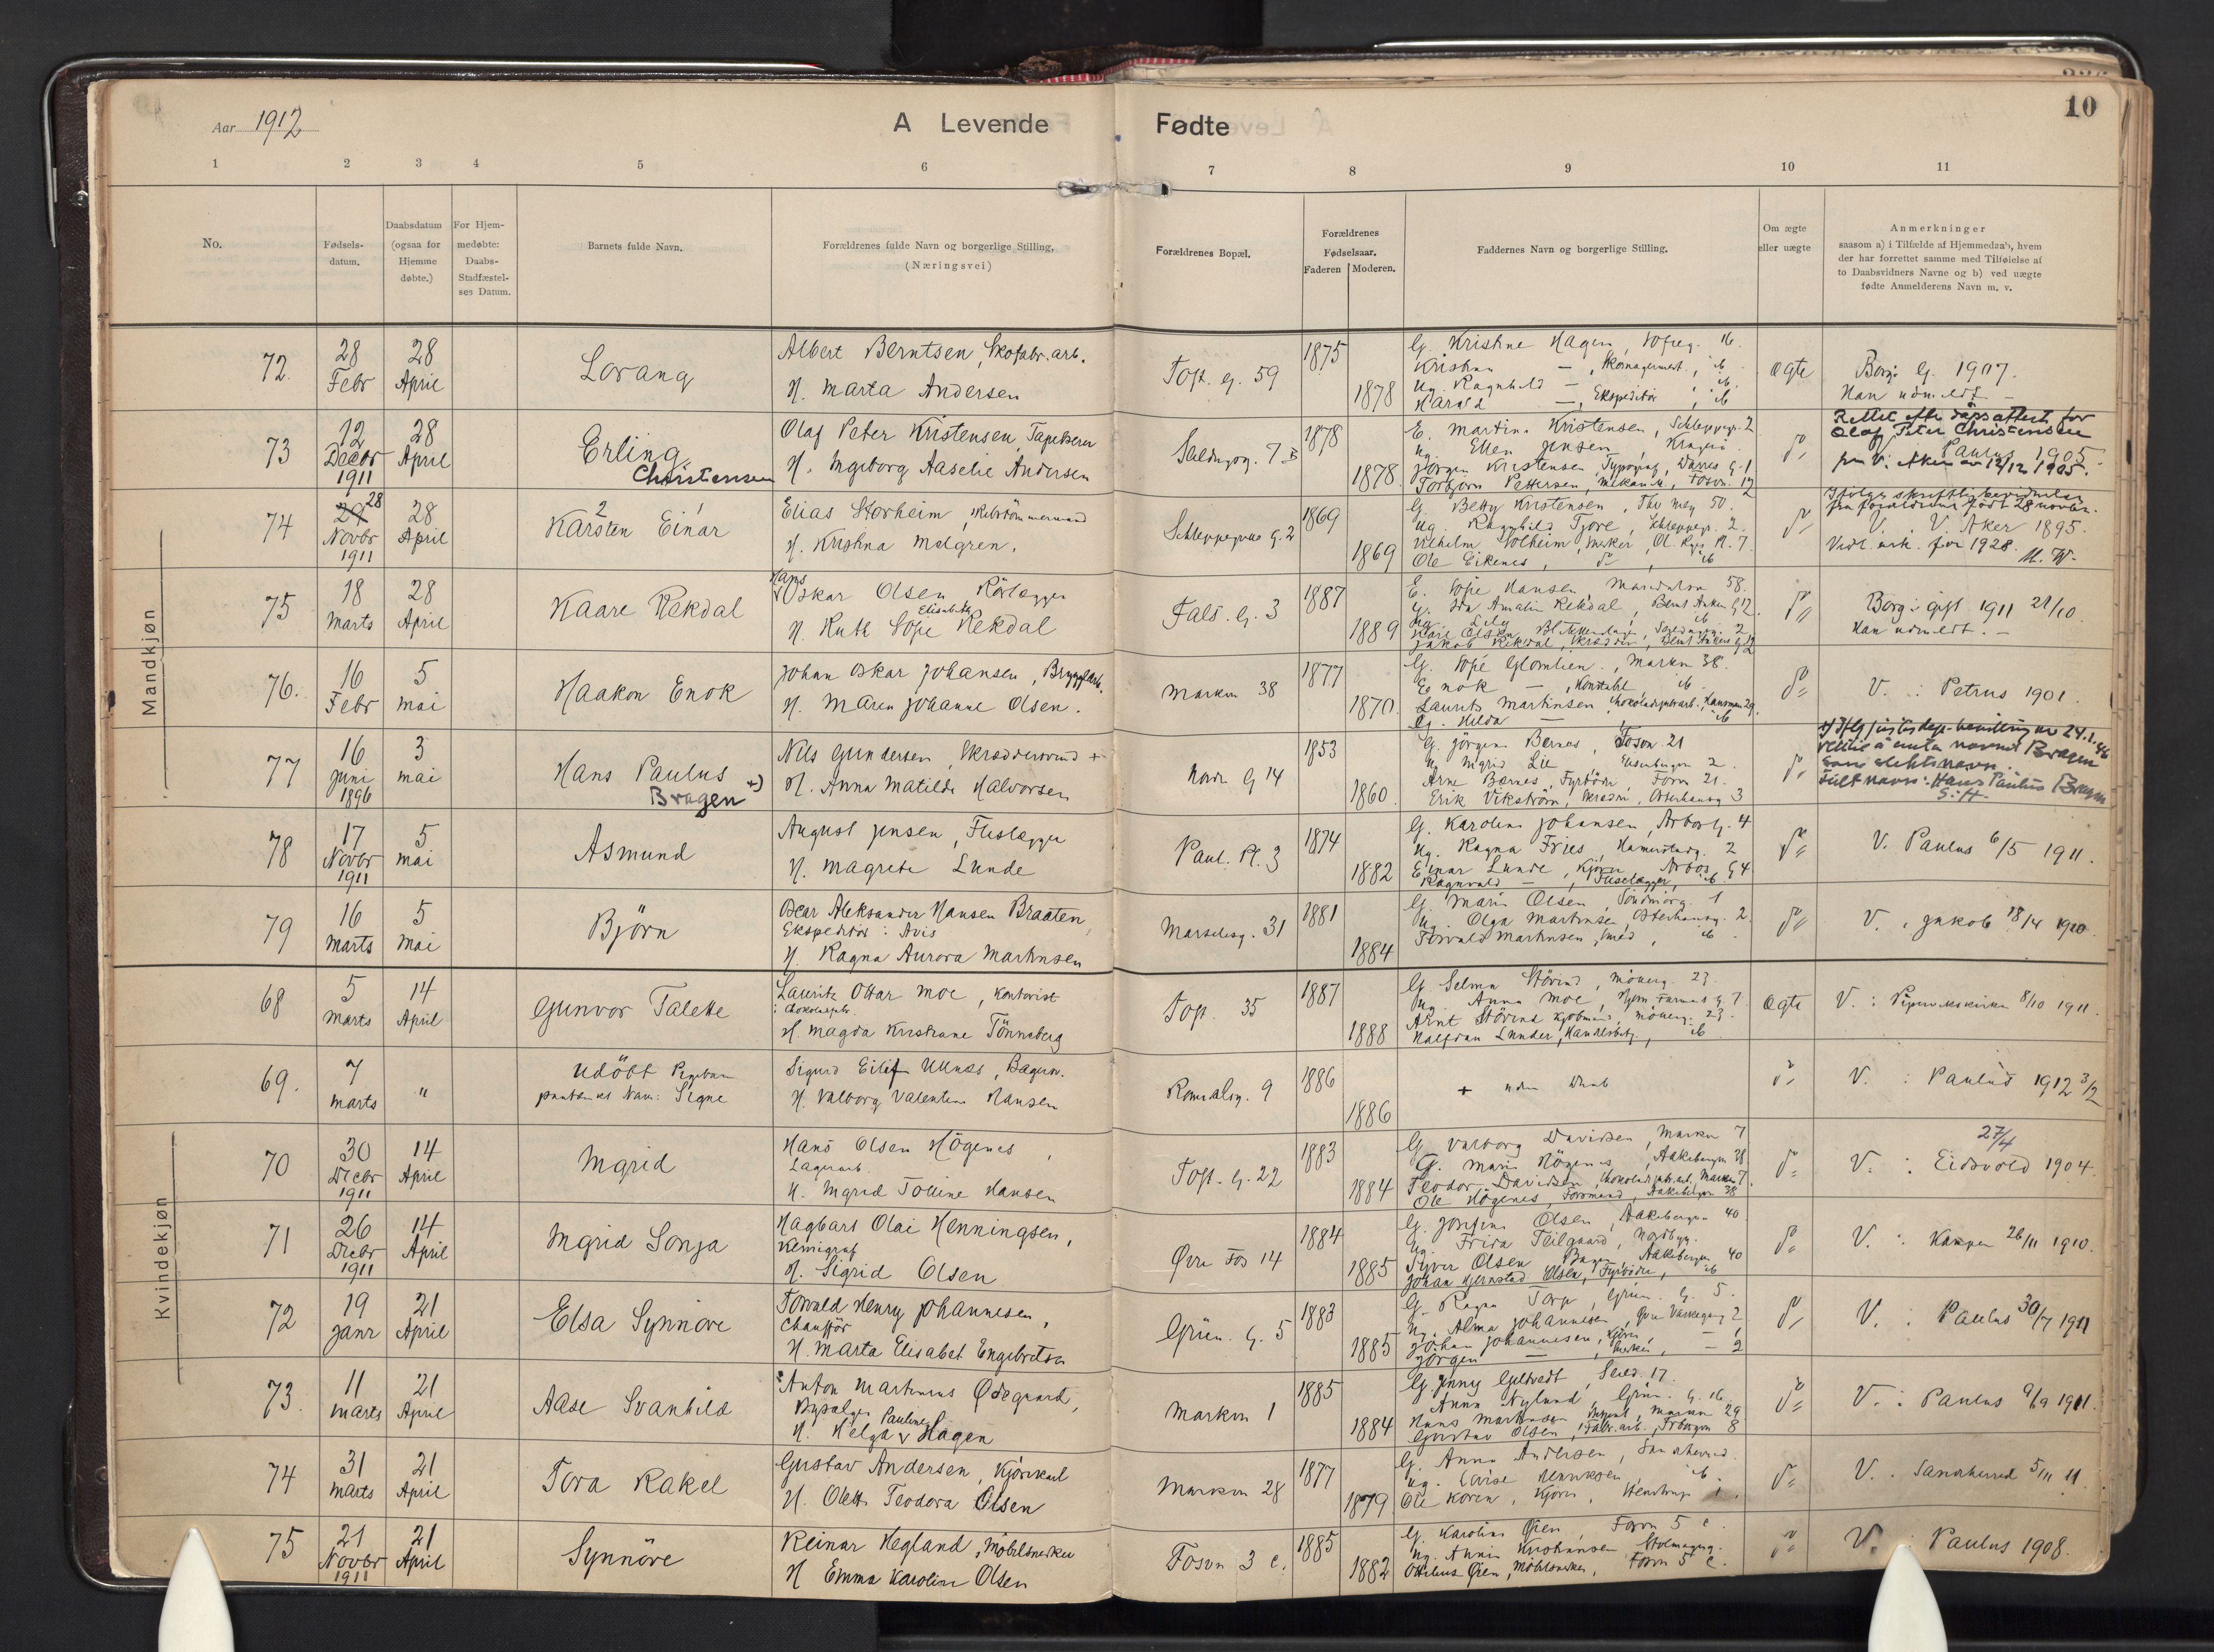 Aar 1912
A Levende Fødte
10
1 2 3 4 5 6 7 8 9 10 11
No.
Fødsels-
datum.
Daabsdatum
(ogsaa for
Hjemme
døbte.)
For Hjem-
medøbte:
Daabs-
Stadfæstel-
ses Datum.
Barnets fulde Navn.
Forældrenes fulde Navn og borgerlige Stilling,
(Næringsvei)
Forældrenes Bopæl.
Forældrenes
Fødselsaar.
Faderen Moderen.
Faddernes Navn og borgerlige Stilling.
Om ægte
eller uægte
Anmerkninger
saasom a) i Tilfælde af Hjemmedaab, hvem
der har forrettet samme med Tilføielse af
to Daabsvidners Navne og b) ved uægte
fødte Anmelderens Navn m. v.
Mandkjøn
72.
28
Febr
28
April
Lorang
Albert Berntsen, Skofabr. arb.
H. Marta Andersen
Toft. g. 59
1875
1878
G. Kristine Hagen
Ug. Ragnhild
Harald —, Ekspeditør, ib
ægte
Borg. g. 1907.
Han udmeldt —
73
12
Decbr
1911
28
April
Erling
Christensen
Olaf Peter Kristensen, Tapetserer
H. Ingeborg Aaselie Andersen
1878
1878
E. Martine Kristensen, Schleppegr. 2
Ug. Ellen Jensen, Kragerø
Jørgen Kristensen, Typograf
Torbjørn Pettersen, Mekanik., Fosvn. 12
Rettet efter dåpsattest for
Olaf Peter Christensen
Paulus 1905.
fra V. Aker av 12/12 1905.
74
29 28
Novbr
1911
28
April
2 1
Karsten Einar
Elias Storheim
H. Kristina Melgren.
Schleppegrells G. 2
1869
1869
G. Betty Kristensen, Thv Mey 50.
Ug. Ragnhild Tjore, Schleppegr. 2.
Vilhelm Solheim
Ole Eikenes, do, ib
Ifølge skriftlig bevidnelse
fra forældrene født 28 novbr.
V. V. Aker 1895.
Vidl. utk. for 1928. M. W.
75
18
Marts
28
April
Kaare Rekdal
Hans
Oskar Olsen Rørlægger
Elisabeth
H. Ruth Sofie Rekdal
Fals. G. 3
1887
1889
E. Sofie Hansen, Maridalsvn 58.
G. Ida Amalie Rekdal, Bernt Ankers G 12.
Ug. Lily ib
Jakob Rekdal, Skrædder, Bernt Ankers G 12
Borg: gift 1911 21/10.
Han udmeldt. —
76.
16
Febr
5
Mai
Haakon Enok
Johan Oskar Johansen, Bryggearb.
H. Maren Johanne Olsen.
Markvn 38
1877
1870.
G. Sofie Glomlien., Markvn 38.
Enok —, Konstabl ib
Laurits Martinsen
Ug. Hilda — ib
V. : Petrus 1901.
77
16
Juni
1896
3
Mai
Hans Paulus
Bragen +)
Nils Gundersen, Skræddersvend +
H. Anna Matilde Halvorsen
Nordr G 14
1853
1860.
G. Jörgine Bernes, Fosvn. 21
Ug. Ingrid Lie
Arne Bernes, Fyrbøder, Fosvn 21.
Erik Vikstrøm, Skrædder, Osterhausg 3
+) Iflg justisdep. bevilling av 24.1.46
rett til å anta navnet Bragen
som slektsnavn.
Fullt navn: Hans Paulus Bragen
S. H.
78
17
Novbr
1911
5
Mai
Asmund
August Jensen, Fliselægger
H. Magrete Lunde
Paul. Pl. 3
1874
1882
G. Karoline Johansen, Arbosg. 4
Ug. Ragna Fries, Hamerstadg. 2
Einar Lunde, Kjører, Arbos G 4
Ragnvald —, Fliselægger, ib
V. Paulus 6/5 1911.
79
16
Marts
5
Mai
Björn
Oscar Aleksander Hansen Braaten,
Ekspeditør i Avis
H. Ragna Aurora Martinsen
Marselesg. 31
1881
1884
G. Marie Olsen, Søndmørg. 1
Ug. Olga Martinsen Osterhausg. 2.
Torvald Martinsen, Smed, ib
V. : Jakob 18/4 1910.
Kvindekjøn
68
5
Marts
14
April
Gunvor Talette
Lauritz Ottar Moe, Kontorist
i Chokoladefabr.
H. Magda Kristiane Tönnsberg
Toft. 35
1887
1888
G. Selma Störind, Möllerg. 23.
Ug. Anna Moe
Arnt Störind Kjøbmand, Möllerg. 23.
Halfdan Lunder, Handelsbetj., ib
ægte
V. : Pipervikskirken 8/10 1911.
69.
7
Marts
"
Udöbt Pigebarn
paatænkt Navn: Signe
H. Valborg Valentine Hansen
Romsdalsg. 9
1886
1886
+ uden Daab
V. : Paulus 1912 3/2
70
30
Decbr
1911
14
April
Ingrid
Hans Olsen Högenes,
Lagerarb.
H. Ingrid Tolline Hansen
Toft. G. 22
1883
1884
G. Valborg Davidsen, Markvn 7
G. Marie Högenes, Aakebergvn 38
Teodor Davidsen, Chokoladefabr. arb., Markvn 7.
Ole Högenes, Formand, Aakebergvn 38
27/4
V. : Eidsvold 1904.
71
26
Decbr
1911
14
April
Ingrid Sonja
Hagbart Olai Henningsen,
Kemigraf
H. Sigrid Olsen
Øvre Fos 14
1884
1885
G. Josefine Olsen, Aakebergvn 40
Ug. Frida Teilgaard, Nordbyg.
Syver Olsen Bager, Aakebergvn 40
Johan Hjernstad Olsen, Fyrbøder, ib
V. : Kampen 26/11 1910.
72
19
Janr
21
April
Elsa Synnöve
Torvald Henry Johannesen,
Chauffør
H. Marta Elisabet Engebretsen
Grün. G. 5
1883
1885
G. Ragna Torp, Grün. G. 5.
Ug. Alma Johannesen
Johan Johannesen, Kjører, — 1
Jørgen — 2
V. : Paulus 30/7 1911
73.
11
Marts
21
April
Aase Svanhild
Anton Martinius Ødegaard,
Bypalger Pauline
H. Helga Hagen
Markvn 1
1885
1884
G. Jenny Gjeltvedt, Seild. 17.
Anna Nylund, Grün. G. 16.
Gustav Olsen, Fabr. arb.
V. : Paulus 9/9 1911.
74
31
Marts
21
April
Tora Rakel
Gustav Andersen, Kjörekarl
H. Olette Teodora Olsen
Markvn 28
1877
1879
G. Anna Andersen, Sandeherred.
Ug. Lovise Henriksen, ib
Ole Koren, Kjører
V. : Sandeherred 5/11 11.
75
21
Novbr
1911
21
April
Synnöve
Reinar Hegland, Møbelsnedker
H. Emma Karoline Olsen
Fosvn 3 c.
1885
1882
G. Karoline Øien, Fosvn 5 c.
Ug. Annie Kristiansen
Othilius Øien, Møbelsnedker, Fosvn 5 c.
V. : Paulus 1908.